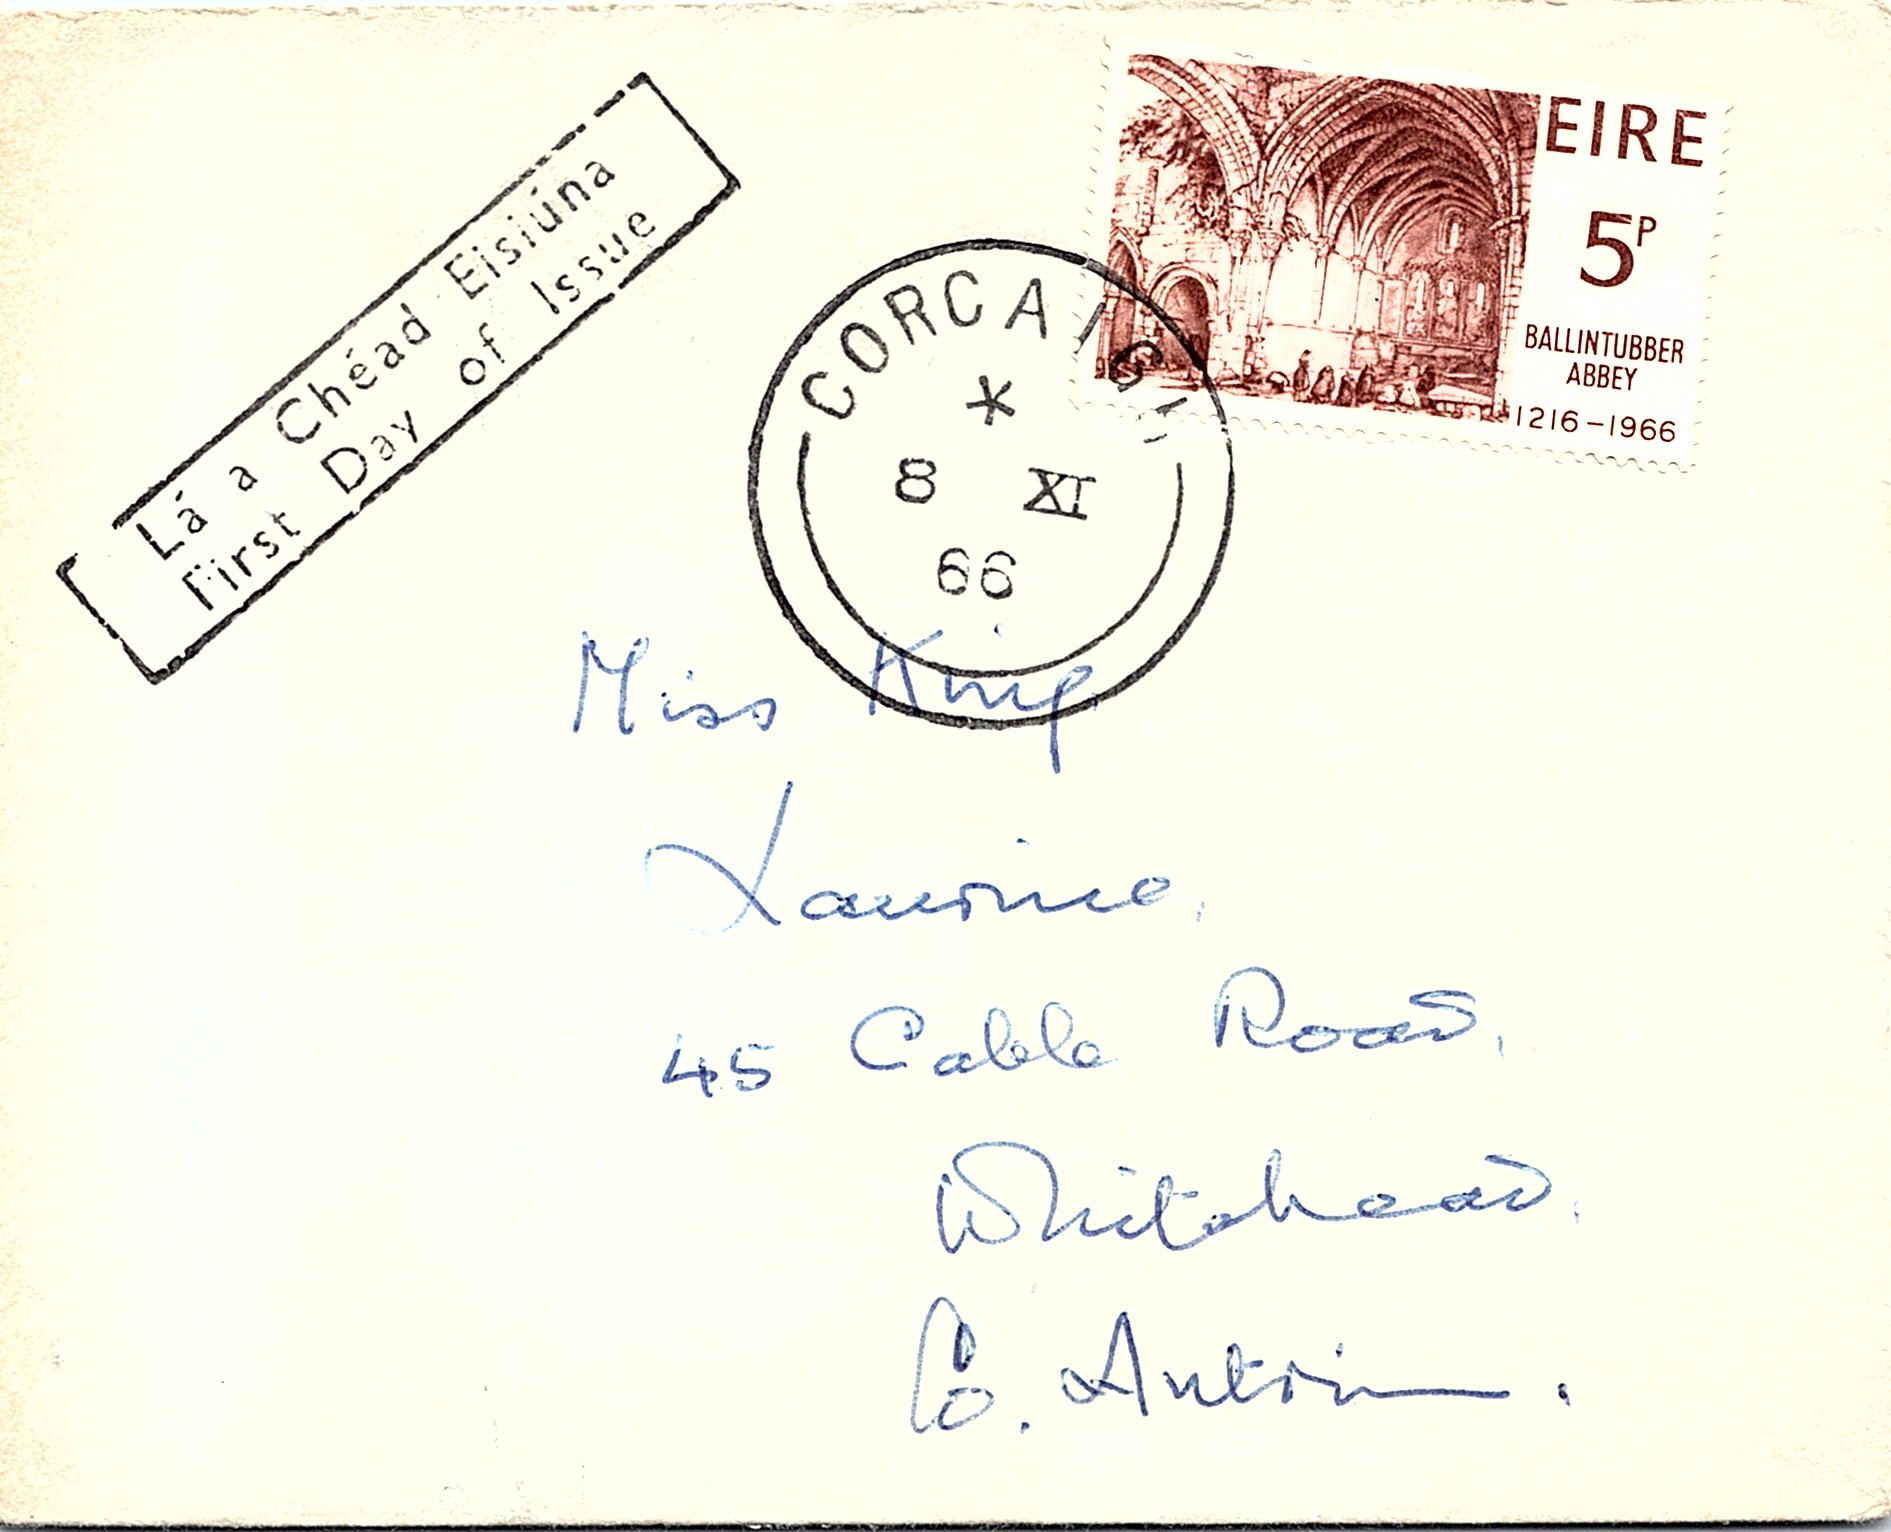 Lá a Chéad Eisiúna
First Day of Issue
EIRE
5P
BALLINTUBBER
ABBEY
1216-1966
CORCAIGH
*
8 XI
66
Miss King
45 Cable Road,
Whitehead,
Co. Antrim.